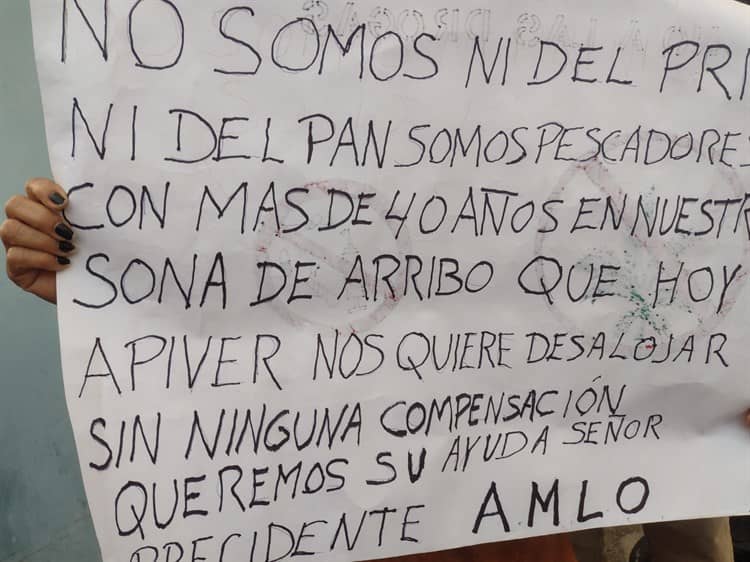 NO SOMOS NI DEL PRI
NI DEL PAN SOMOS PESCADORES
CON MAS DE 40 AÑOS EN NUESTR
SONA DE ARRIBO QUE HOY
APIVER NOS QUIERE DESALOJAR
SIN NINGUNA COMPENSACIÓN
QUEREMOS SU AYUDA SEÑOR
PRECIDENTE A.M.L.O